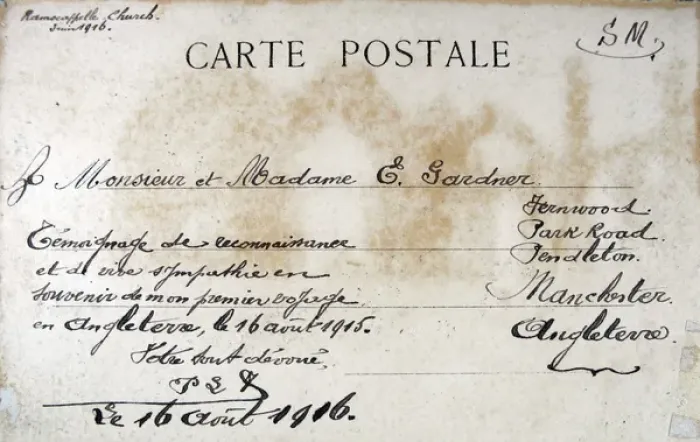 Ramscappelle Church.
Juin 1916.
S M.
CARTE POSTALE
Monsieur et Madame E. Gardner.
Fernwood.
Park Road.
Pendleton.
Manchester.
Angleterre.
Témoignage de reconnaissance
et de vive sympathie en
souvenir de mon premier voyage
en Angleterre, le 16 août 1915.
Votre tout dévoué,
Le 16 Août 1916.